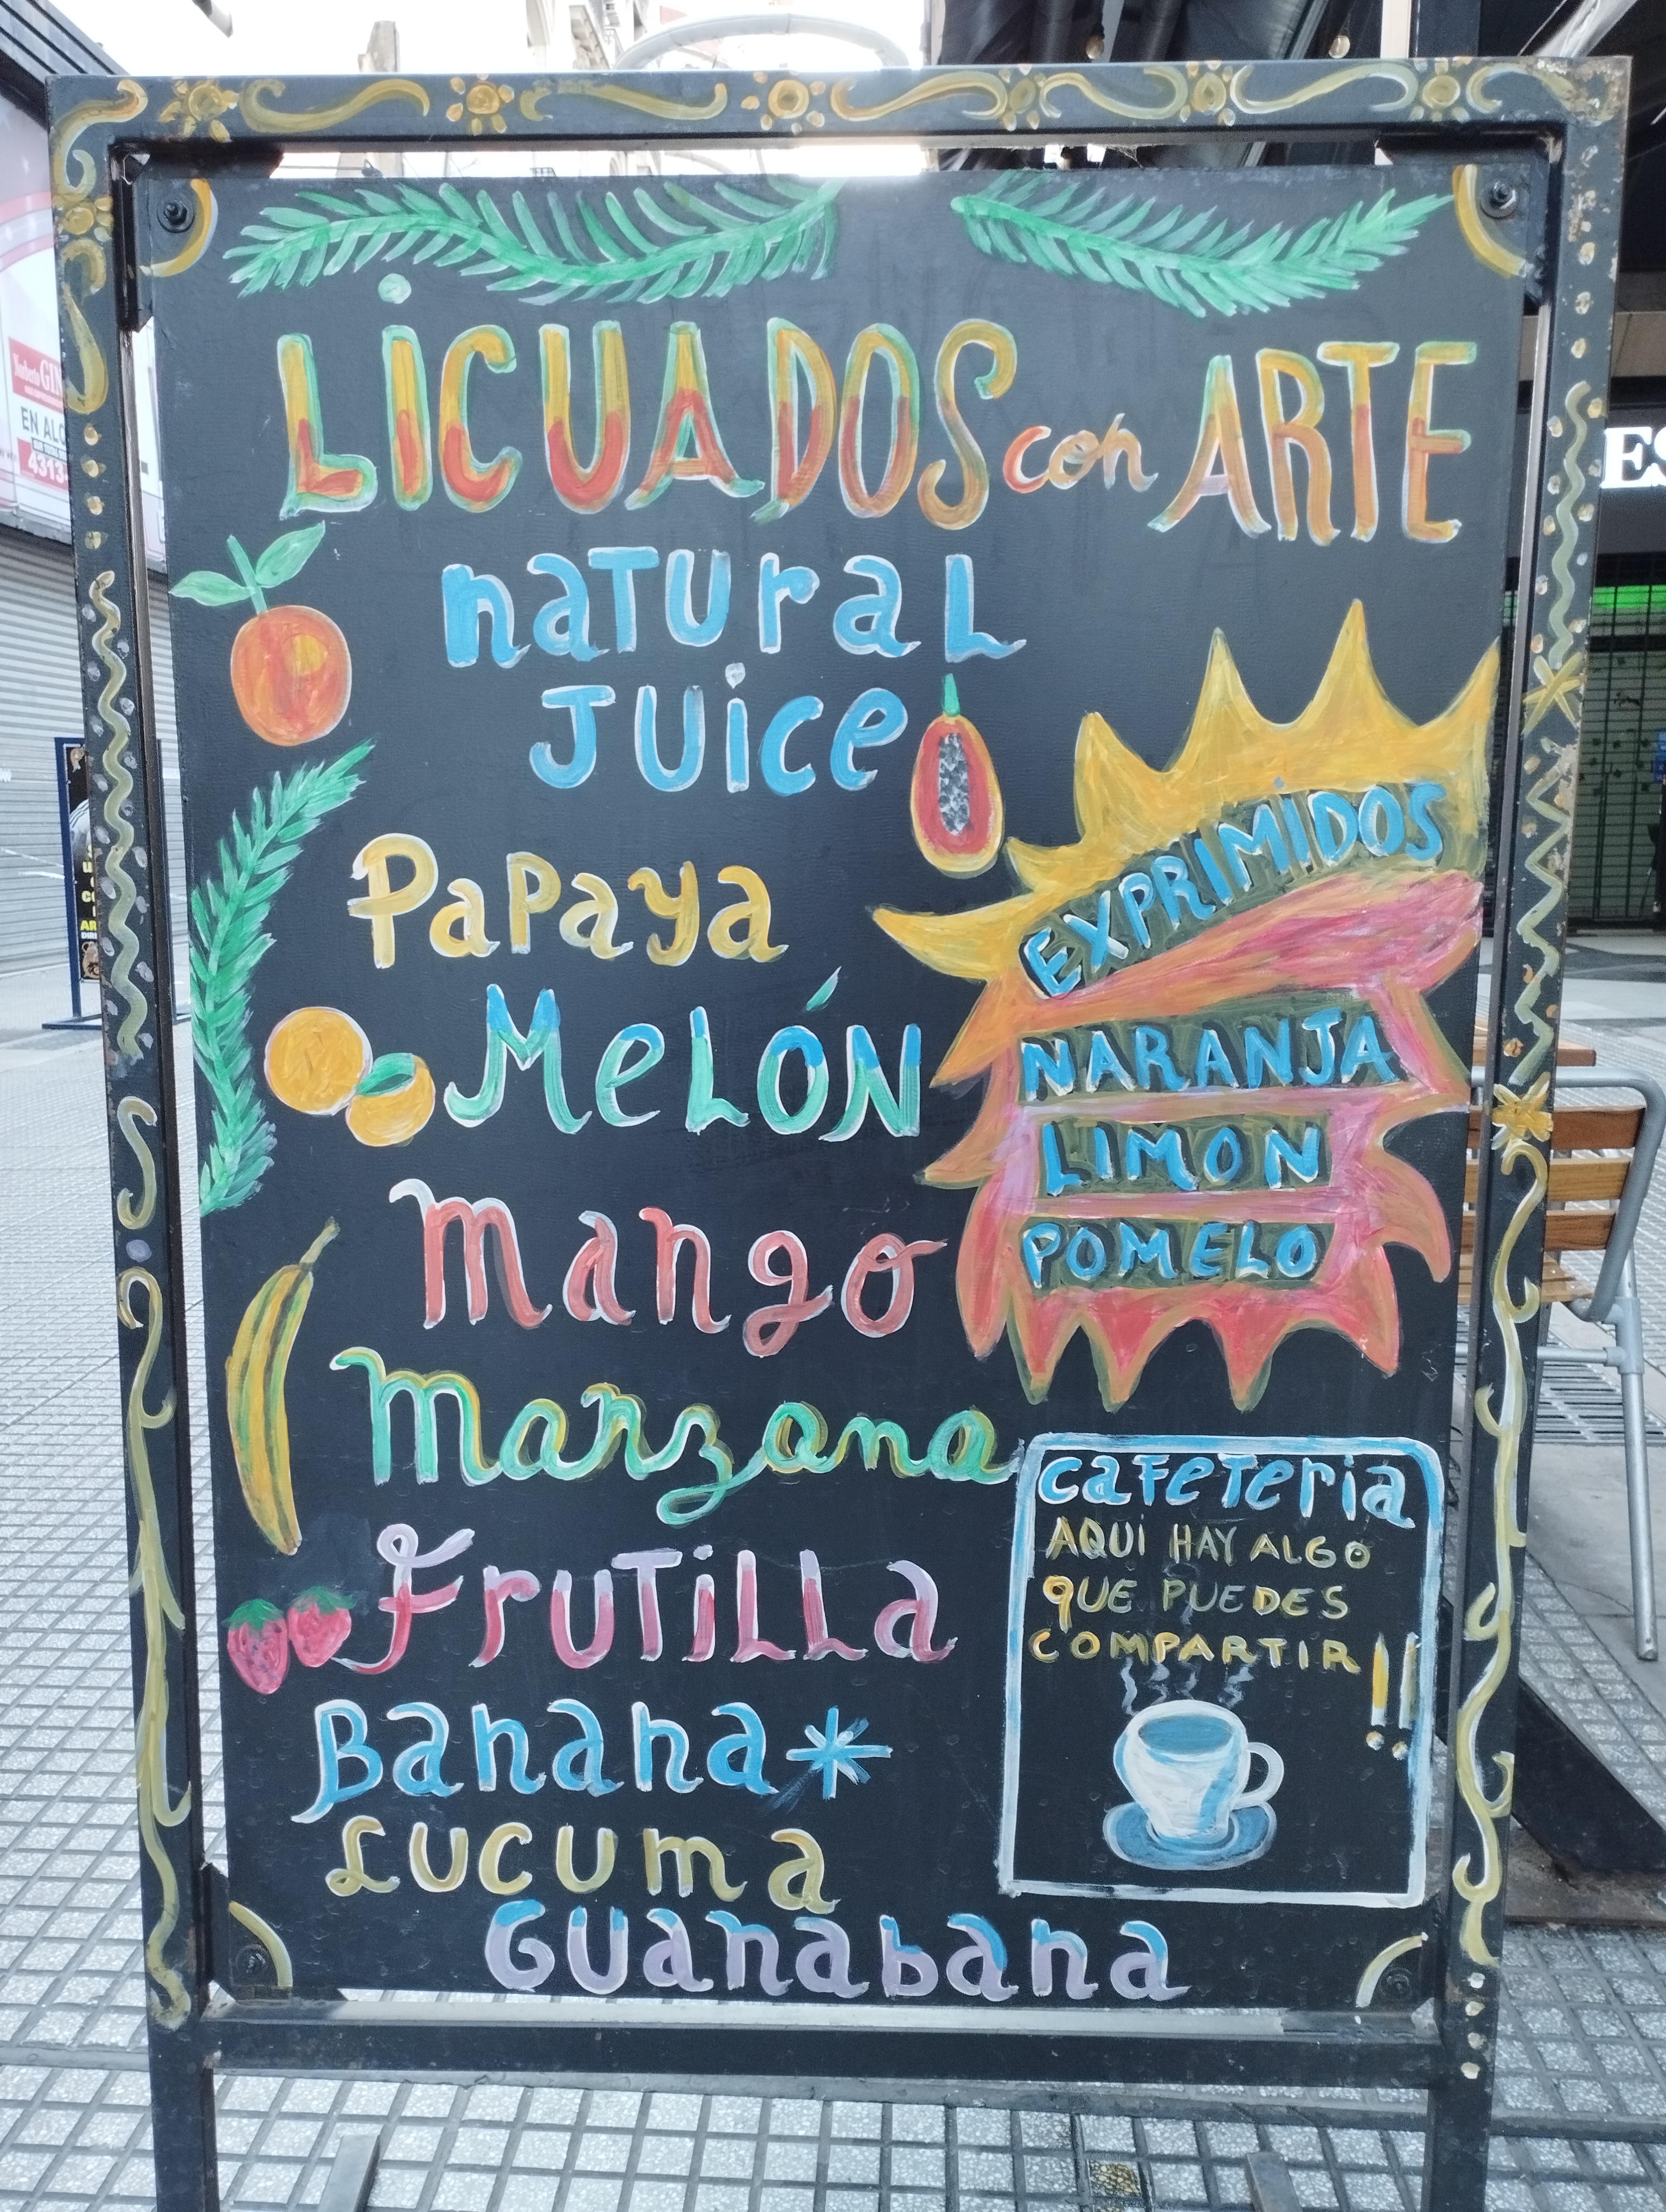 LiCUADOS con ARTE
naTUraL
JUice
PaPaya
MeLÓN
Mango
Manzana
FruTiLLa
Banana*
LUCUma
GUanabana
EXPRIMIDOS
NARANJA
LIMON
POMELO
cafeTeria
AQUI HAY ALGO
QUE PUEDES
COMPARTIR!!
EN ALQ
4313
ES